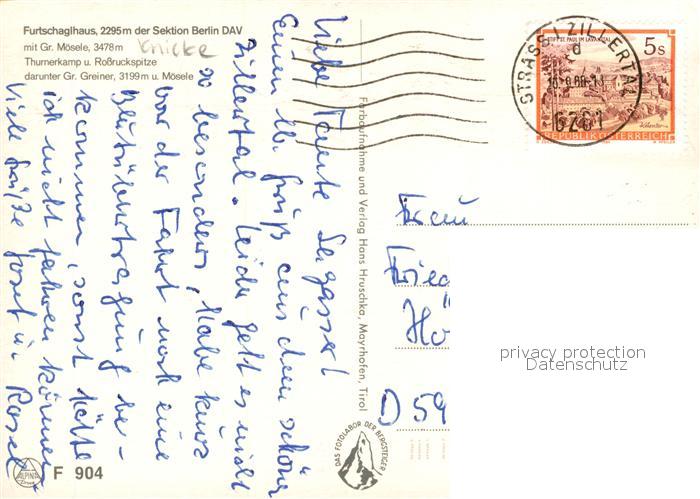 Furtschaglhaus, 2295m der Sektion Berlin DAV
mit Gr. Mösele, 3478m
Thurnerkamp u. Roßruckspitze
darunter Gr. Greiner, 3199m u. Mösele
Knicke
Liebe Tante
Einen lb. Gruß aus dem schönen
Zillertal. Leider geht es nicht
so besonders, habe kurz
vor der Fahrt noch eine
Blutübertragung be-
kommen, sonst hätte
ich nicht fahren können
Viele Grüße Josef u. Rosel
Farbaufnahme und Verlag Hans Hruschka, Mayrhofen, Tirol
STIFT ST. PAUL IM LAVANTTAL
5s
REPUBLIK ÖSTERREICH
STRASS I. ZILLERTAL
d
6261
Frau
Fried
Hö
D 59
privacy protection
Datenschutz
DAS FOTOLABOR DER BERGSTEIGER
ALPINA
F 904